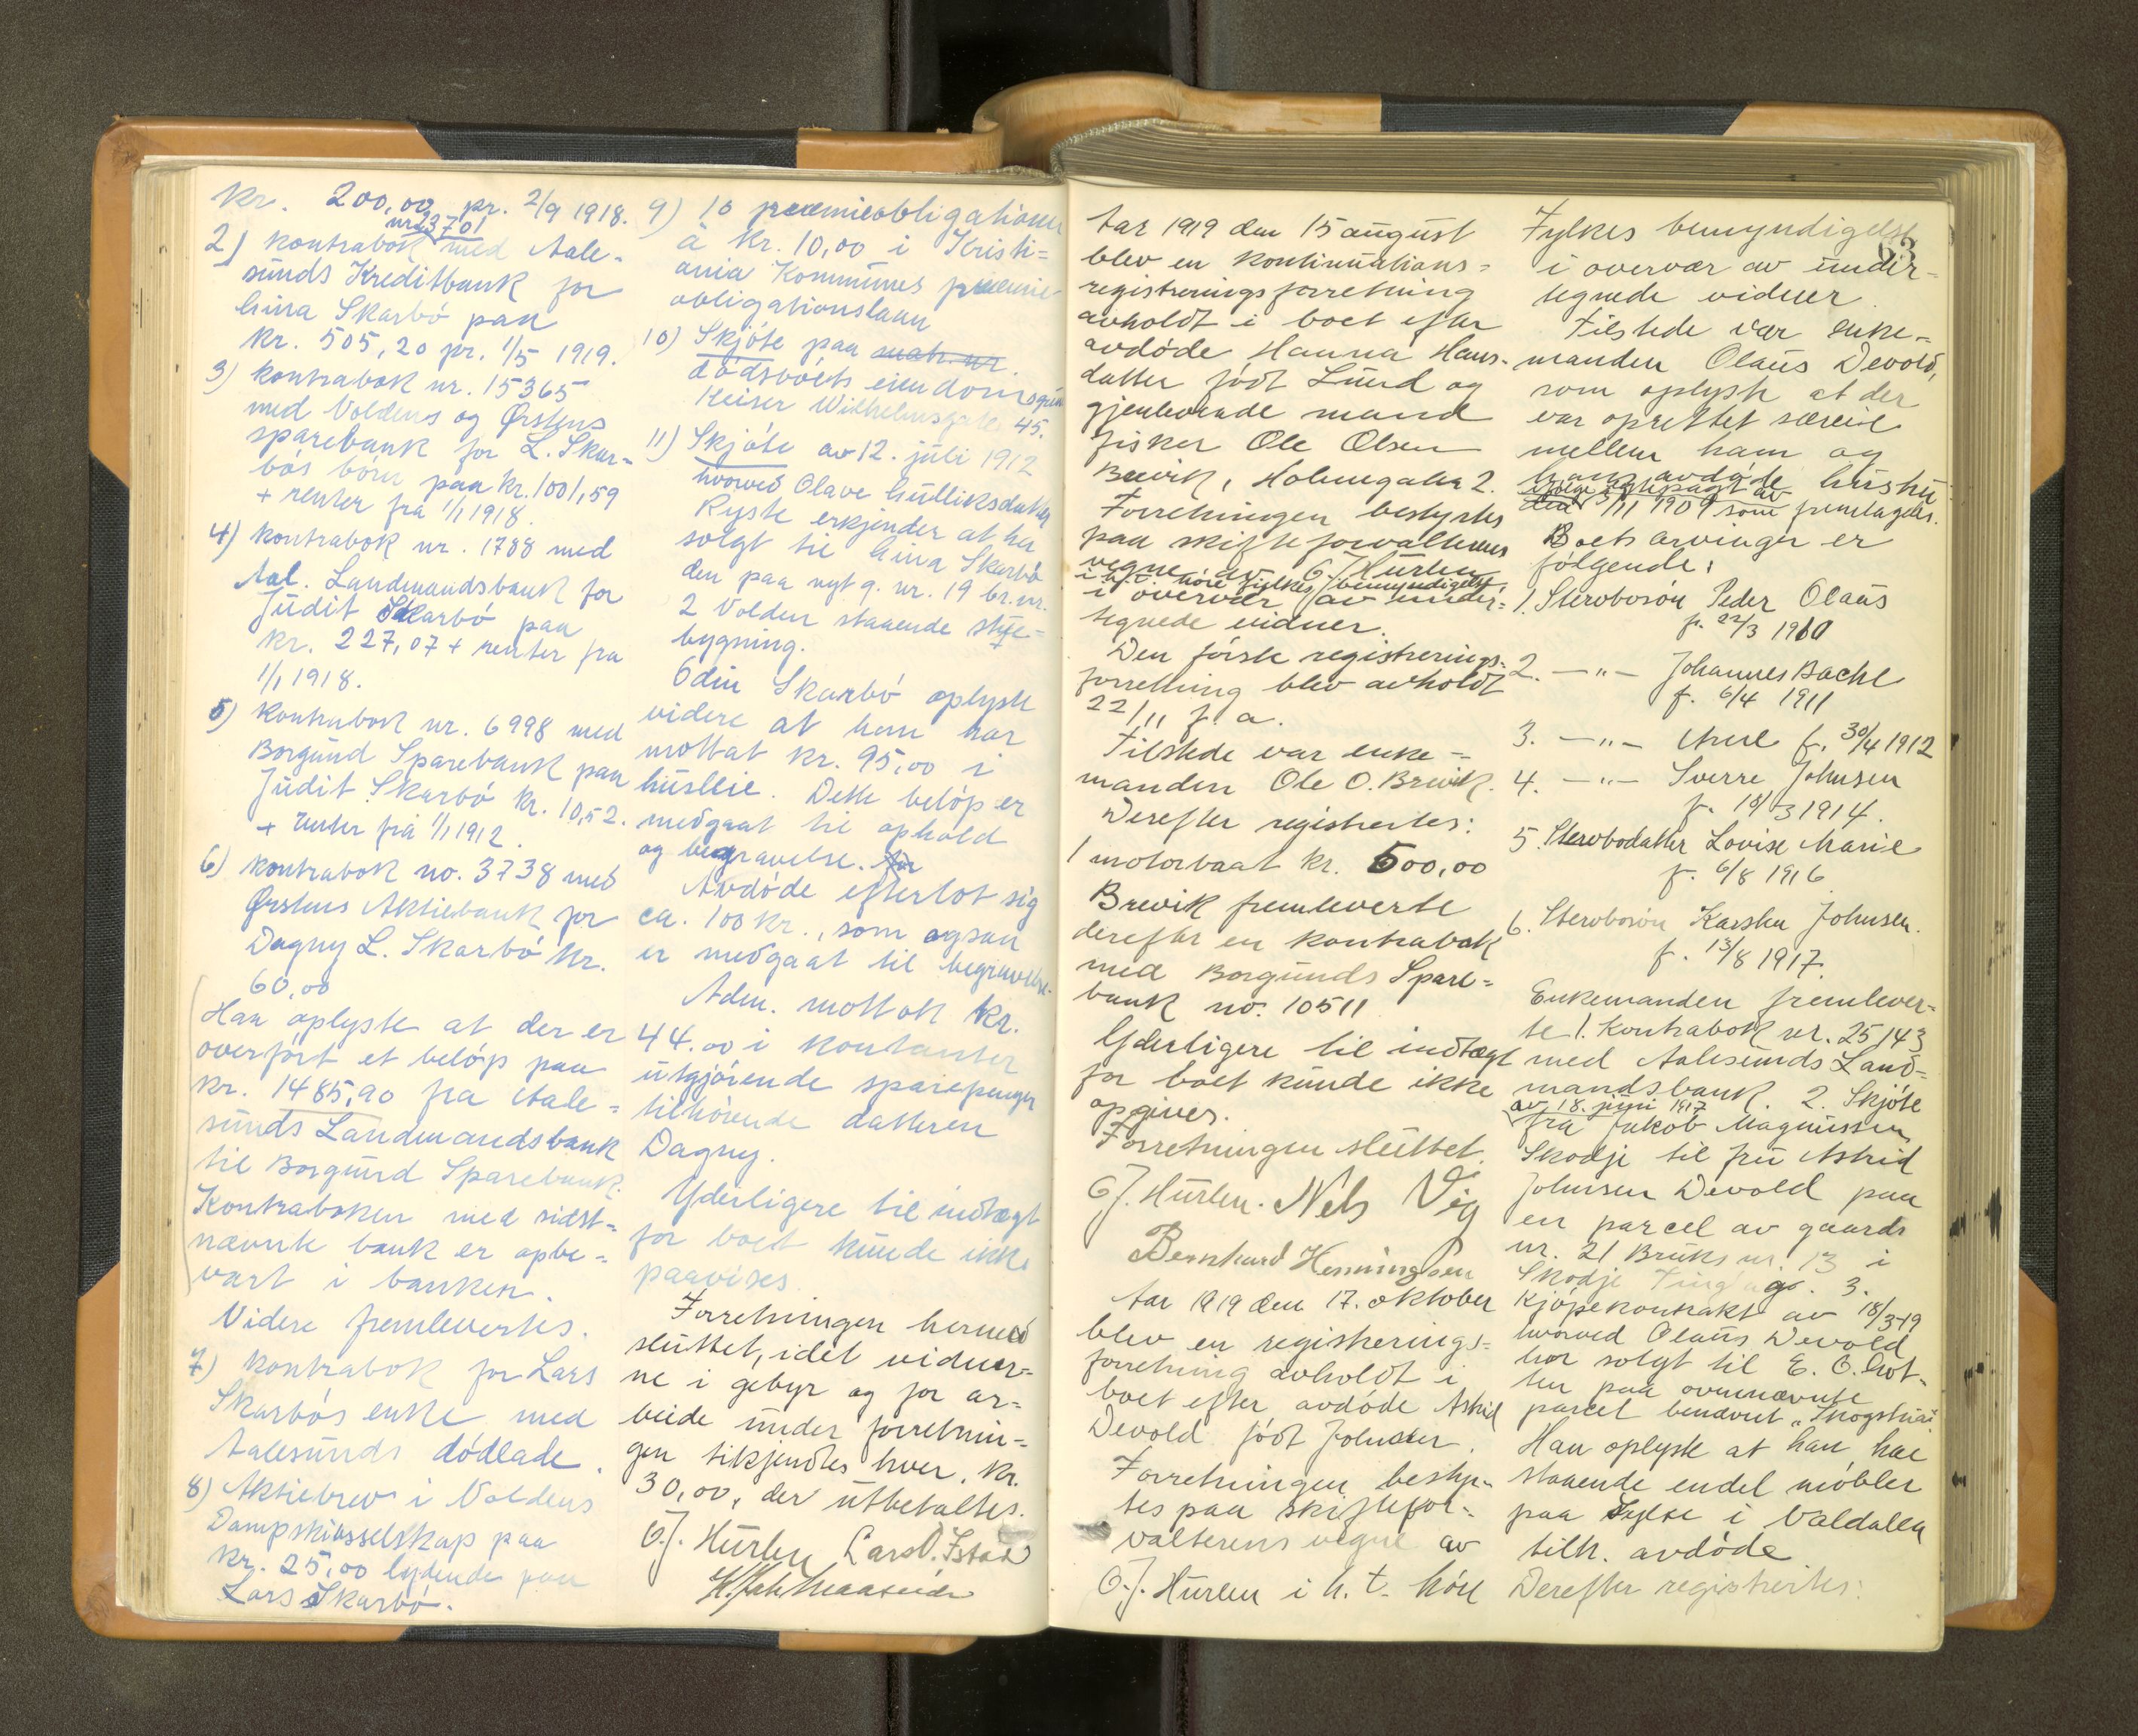 kr. 200,00 pr. 2/9 1918.
nr. 23701
2) kontrabok med Aale-
sunds Kreditbank for
Lina Skarbö paa
kr. 505,20 pr. 1/5 1919.
3) kontrabok nr. 15365
med Voldens og Ørstens
sparebank for L. Skar=
bös börn paa kr. 1001,59
+ renter fra 1/1 1918.
4) kontrabok nr. 1788 med
Aal. Landmandsbank for
Judit Skarbö paa
kr. 227,07 + renter fra
1/1 1918.
5) kontrabok nr. 6998 med
Borgund Sparebank paa
Judit Skarbö kr. 10,52.
+ renter frå 1/1 1912.
6) kontrabok no. 3738 med
Ørstens Aktiebank for
Dagny L. Skarbö kr.
60,00
Han oplyste at der er
overfört et belöp paa
kr. 1485,90 fra Aale=
sunds Landmandsbank
til Borgund Sparebank.
Kontraboken med sidst=
nævnte bank er opbe=
vart i banken.
Videre fremlevertes.
7) kontrabok for Lars
Skarbös enke med
Aalesunds dödlade.
8) Aktiebrev i Voldens
Dampskibsselskap paa
kr. 25,00 lydende paa
Lars Skarbö.
9) 10 præmieobligationer
à kr. 10,00 i Kristi=
ania Kommunes præmie
obligationslaan
10) Skjöte paa matr. nr.
dödsboets eiendom
Keiser Wilhelmsgate 45.
11) Skjöte av 12. juli 1912
hvorved Olave Gulliksdatter
Ryste erkjender at ha
solgt til Lina Skarbö
den paa nyt g. nr. 19 br. nr.
2 Volden staaende stue=
bygning.
Odin Skarbö oplyste
videre at han har
mottat kr. 95,00 i
husleie. Dette belöp er
medgaat til ophold
og begravelse. for
Avdöde efterlot sig
ca. 100 kr., som ogsaa
er medgaat til begravelse.
Adm. mottok kr.
44.00 i kontanter
utgjörende sparepenger
tilhörende datteren
Dagny.
Yderligere til indtægt
for boet kunde ikke
paavises.
Forretningen hermed
sluttet, idet vidner=
ne i gebyr og for ar=
beide under forretnin=
gen tilkjendtes hver. kr.
30,00, der utbetaltes.
O. J. Hurlen Lars O. Istad
Aar 1919 den 15 august
blev en kontinuations=
registreringsforretning
avholdt i boet efter
avdöde Hanna Hans-
datter födt Lund og
gjenlevende mand
fisker Ole Olsen
Brevik, Holmegata 2.
Forretningen bestyrtes
paa skifteforvalterens
vegne av O. J. Hurlen
i h.t. höie fylkes bemyndigelse
i overvær av under=
tegnede vidner.
Den förste registrerings-
forretning blev avholdt
22/11 f. a.
Tilstede var enke=
manden Ole O. Brevik.
Derefter registrertes:
1 motorbaat kr. 500,00
Brevik fremleverte
derefter en kontrabok
med Borgunds Spare=
bank no. 10511
Yderligere til indtægt
for boet kunde ikke
opgives.
Forretningen sluttet.
O. J. Hurlen. Nels Vig
Bernhard Henningsen
Aar 1919 den 17. oktober
blev en registrerings=
forretning avholdt i
boet efter avdöde Astrid
Devold födt Johnsen.
Forretningen besty-
tes paa skiftefor-
valterens vegne av
O. J. Hurlen i h. t. höie
63
Fylkes bemyndigelse
i overvær av under=
tegnede vidner.
Tilstede var enke=
manden Olaus Devold,
som oplyste at der
var oprettet særeie
mellem ham og
hans avdöde hustru
ifölge ektepagt av
den 5/11 1909 som fremlagdes.
Boets arvinger er
fölgende:
1. Stervbosön Peder Olaus
f. 22/3 1910
2. —"— Johannes Bache
f. 6/4 1911
3. —"— f. 30/4 1912
4. —"— Sverre Johnsen
f. 18/3 1914.
5. Stervbodatter Lovise Marie
f. 6/8 1916
6. Stervbosön Karsten Johnsen.
f. 13/8 1917.
Enkemanden fremlever=
te 1. Kontrabok nr. 25143
med Aalesunds Land=
mandsbank. 2. Skjöte
av 18. juni 1917
fra Jakob Magnussen
Skodje til fru Astrid
Johnsen Devold paa
en parcel av gaards
nr. 21 Bruks nr. 13 i
Skodje Tinglag. 3.
Kjöpekontrakt av 18/3-19
hvorved Olaus Devold
har solgt til E. O. Grot-
ten paa ovennævnte
parcel benævnt "Skogstua"
Han oplyste at han har
staaende endel möbler
paa Sylte i Valdalen
tilh. avdöde
Derefter registrertes: